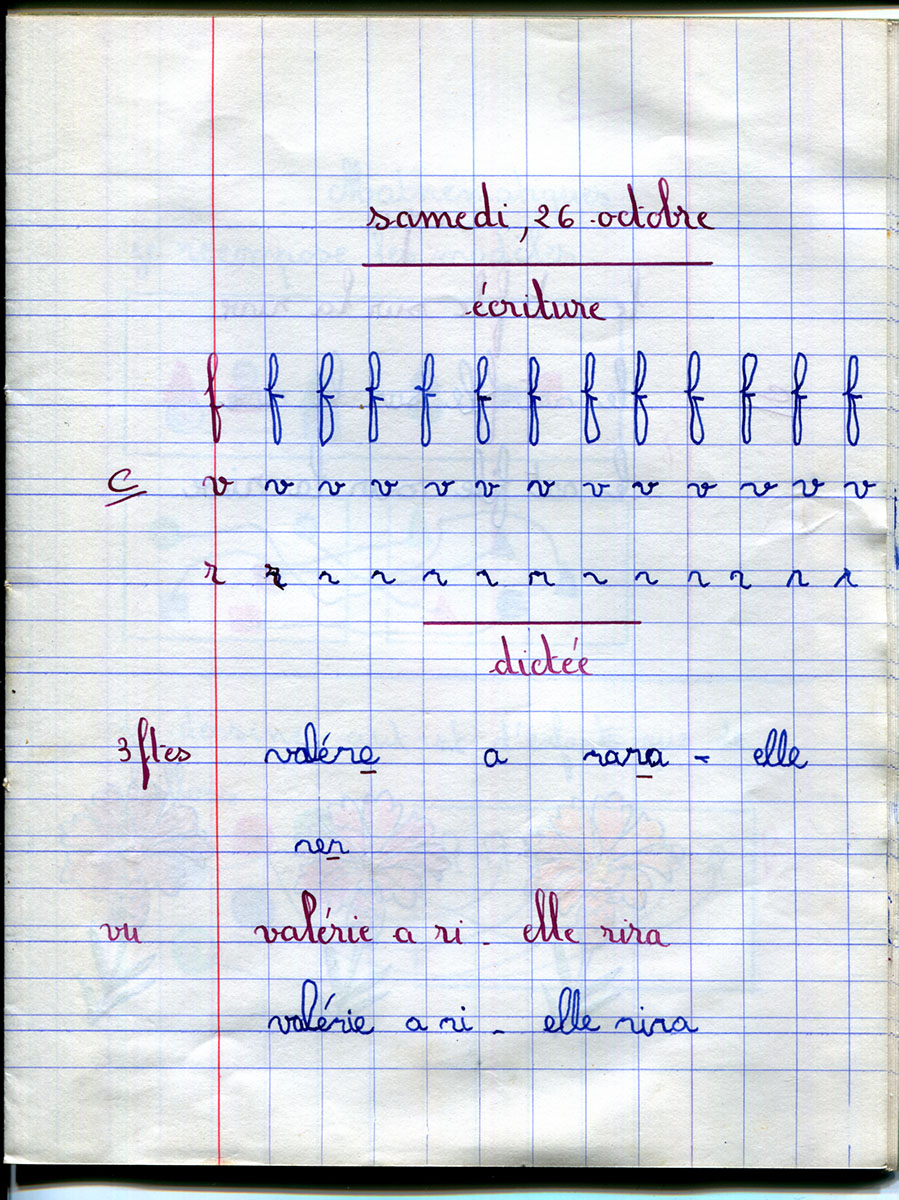 samedi, 26 octobre
écriture
f f f f f f f f f f f f f
C v v v v v v v v v v v v v
r r r r r r r r r r r r r
dictée
3 ftes valére a rara - elle
rer
vu valérie a ri - elle rira
valérie a ri - elle rira